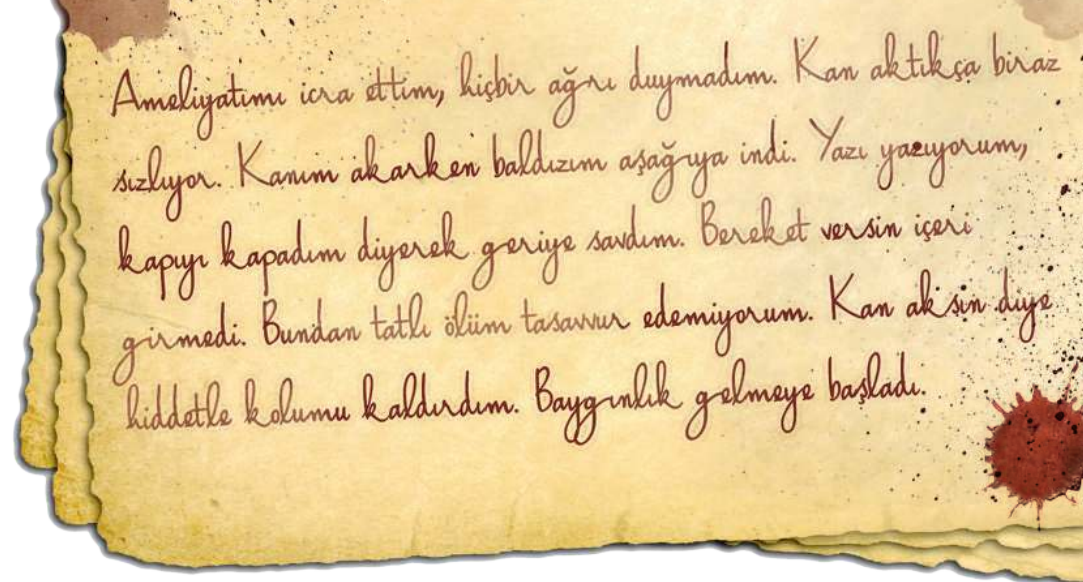 Ameliyatımı icra ettim, hiçbir ağrı duymadım. Kan aktıkça biraz
sızlıyor. Kanım akarken baldızım aşağıya indi. Yazı yazıyorum,
kapıyı kapadım diyerek geriye savdım. Bereket versin içeri
girmedi. Bundan tatlı ölüm tasavvur edemiyorum. Kan aksın diye
hiddetle kolumu kaldırdım. Baygınlık gelmeye başladı.